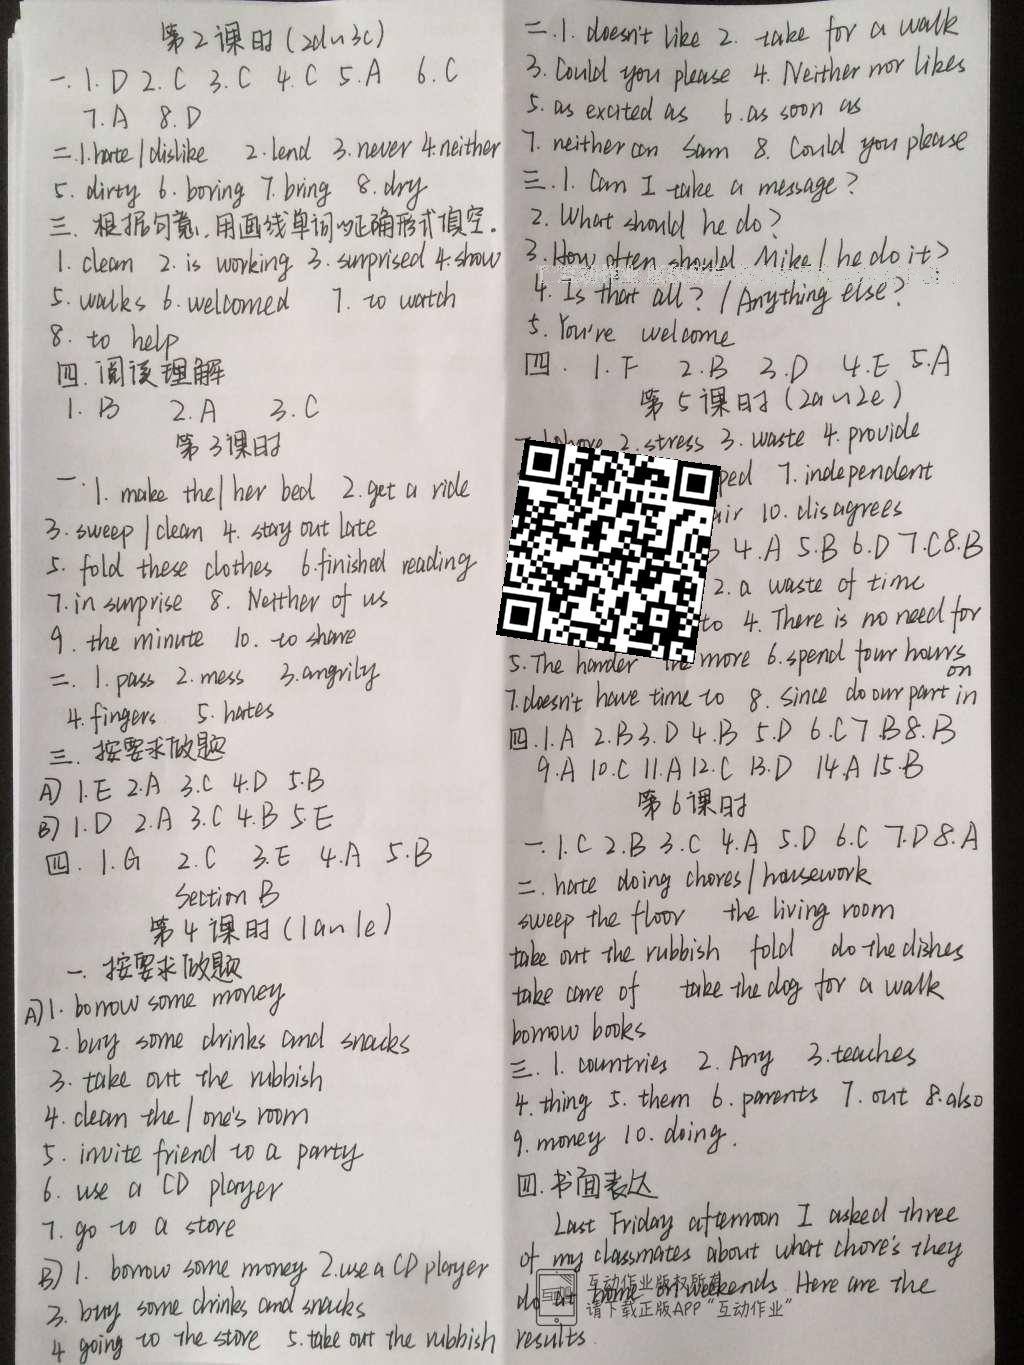 第2课时(2d~3c)
一.1.D 2.C 3.C 4.C 5.A 6.C
7.A 8.D
二.1.hate/dislike 2.lend 3.never 4.neither
5.dirty 6.boring 7.bring 8.dry
三.根据句意,用画线单词的正确形式填空。
1.clean 2.is working 3.surprised 4.show
5.walks 6.welcomed 7.to watch
8.to help
四.阅读理解
1.B 2.A 3.C
第3课时
一.1.make the/her bed 2.get a ride
3.sweep/clean 4.stay out late
5.fold these clothes 6.finished reading
7.in surprise 8.Neither of us
9.the minute 10.to share
二.1.pass 2.mess 3.angrily
4.fingers 5.hates
三.按要求做题
A)1.E 2.A 3.C 4.D 5.B
B)1.D 2.A 3.C 4.B 5.E
四.1.G 2.C 3.E 4.A 5.B
Section B
第4课时(1a~1e)
一.按要求做题
A)1.borrow some money
2.buy some drinks and snacks
3.take out the rubbish
4.clean the/one's room
5.invite friend to a party
6.use a CD player
7.go to a store
B)1.borrow some money 2.use a CD player
3.buy some drinks and snacks
4 going to the store 5.take out the rubbish
二.1.doesn't like 2.take for a walk
3.Could you please 4.Neither nor likes
5.as excited as 6.as soon as
7.neither can Sam 8.Could you please
三.1.Can I take a message?
2.What should he do?
3.How often should Mike/he do it?
4.Is that all?/Anything else?
5.You're welcome
四.1.F 2.B 3.D 4.E 5.A
第5课时(2a~2e)
2.stress 3.waste 4.provide
7.independent
10.disagrees
4.A 5.B 6.D 7.C 8.B
2.a waste of time
to 4.There is no need for
5.The harder the more 6.spend four hours on
7.doesn't have time to 8.since do our part in
四.1.A 2.B 3.D 4.B 5.D 6.C 7.B 8.B
9.A 10.C 11.A 12.C 13.D 14.A 15.B
第6课时
一.1.C 2.B 3.C 4.A 5.D 6.C 7.D 8.A
二.hate doing chores/housework
sweep the floor the living room
take out the rubbish fold do the dishes
take care of take the dog for a walk
borrow books
三.1.countries 2.Any 3.teaches
4.thing 5.them 6.parents 7.out 8.also
9.money 10.doing.
四.书面表达
Last Friday afternoon I asked three
of my classmates about what chore's they
do at home on weekends. Here are the
results.
互动作业版权所有
请下载正版APP“互动作业”